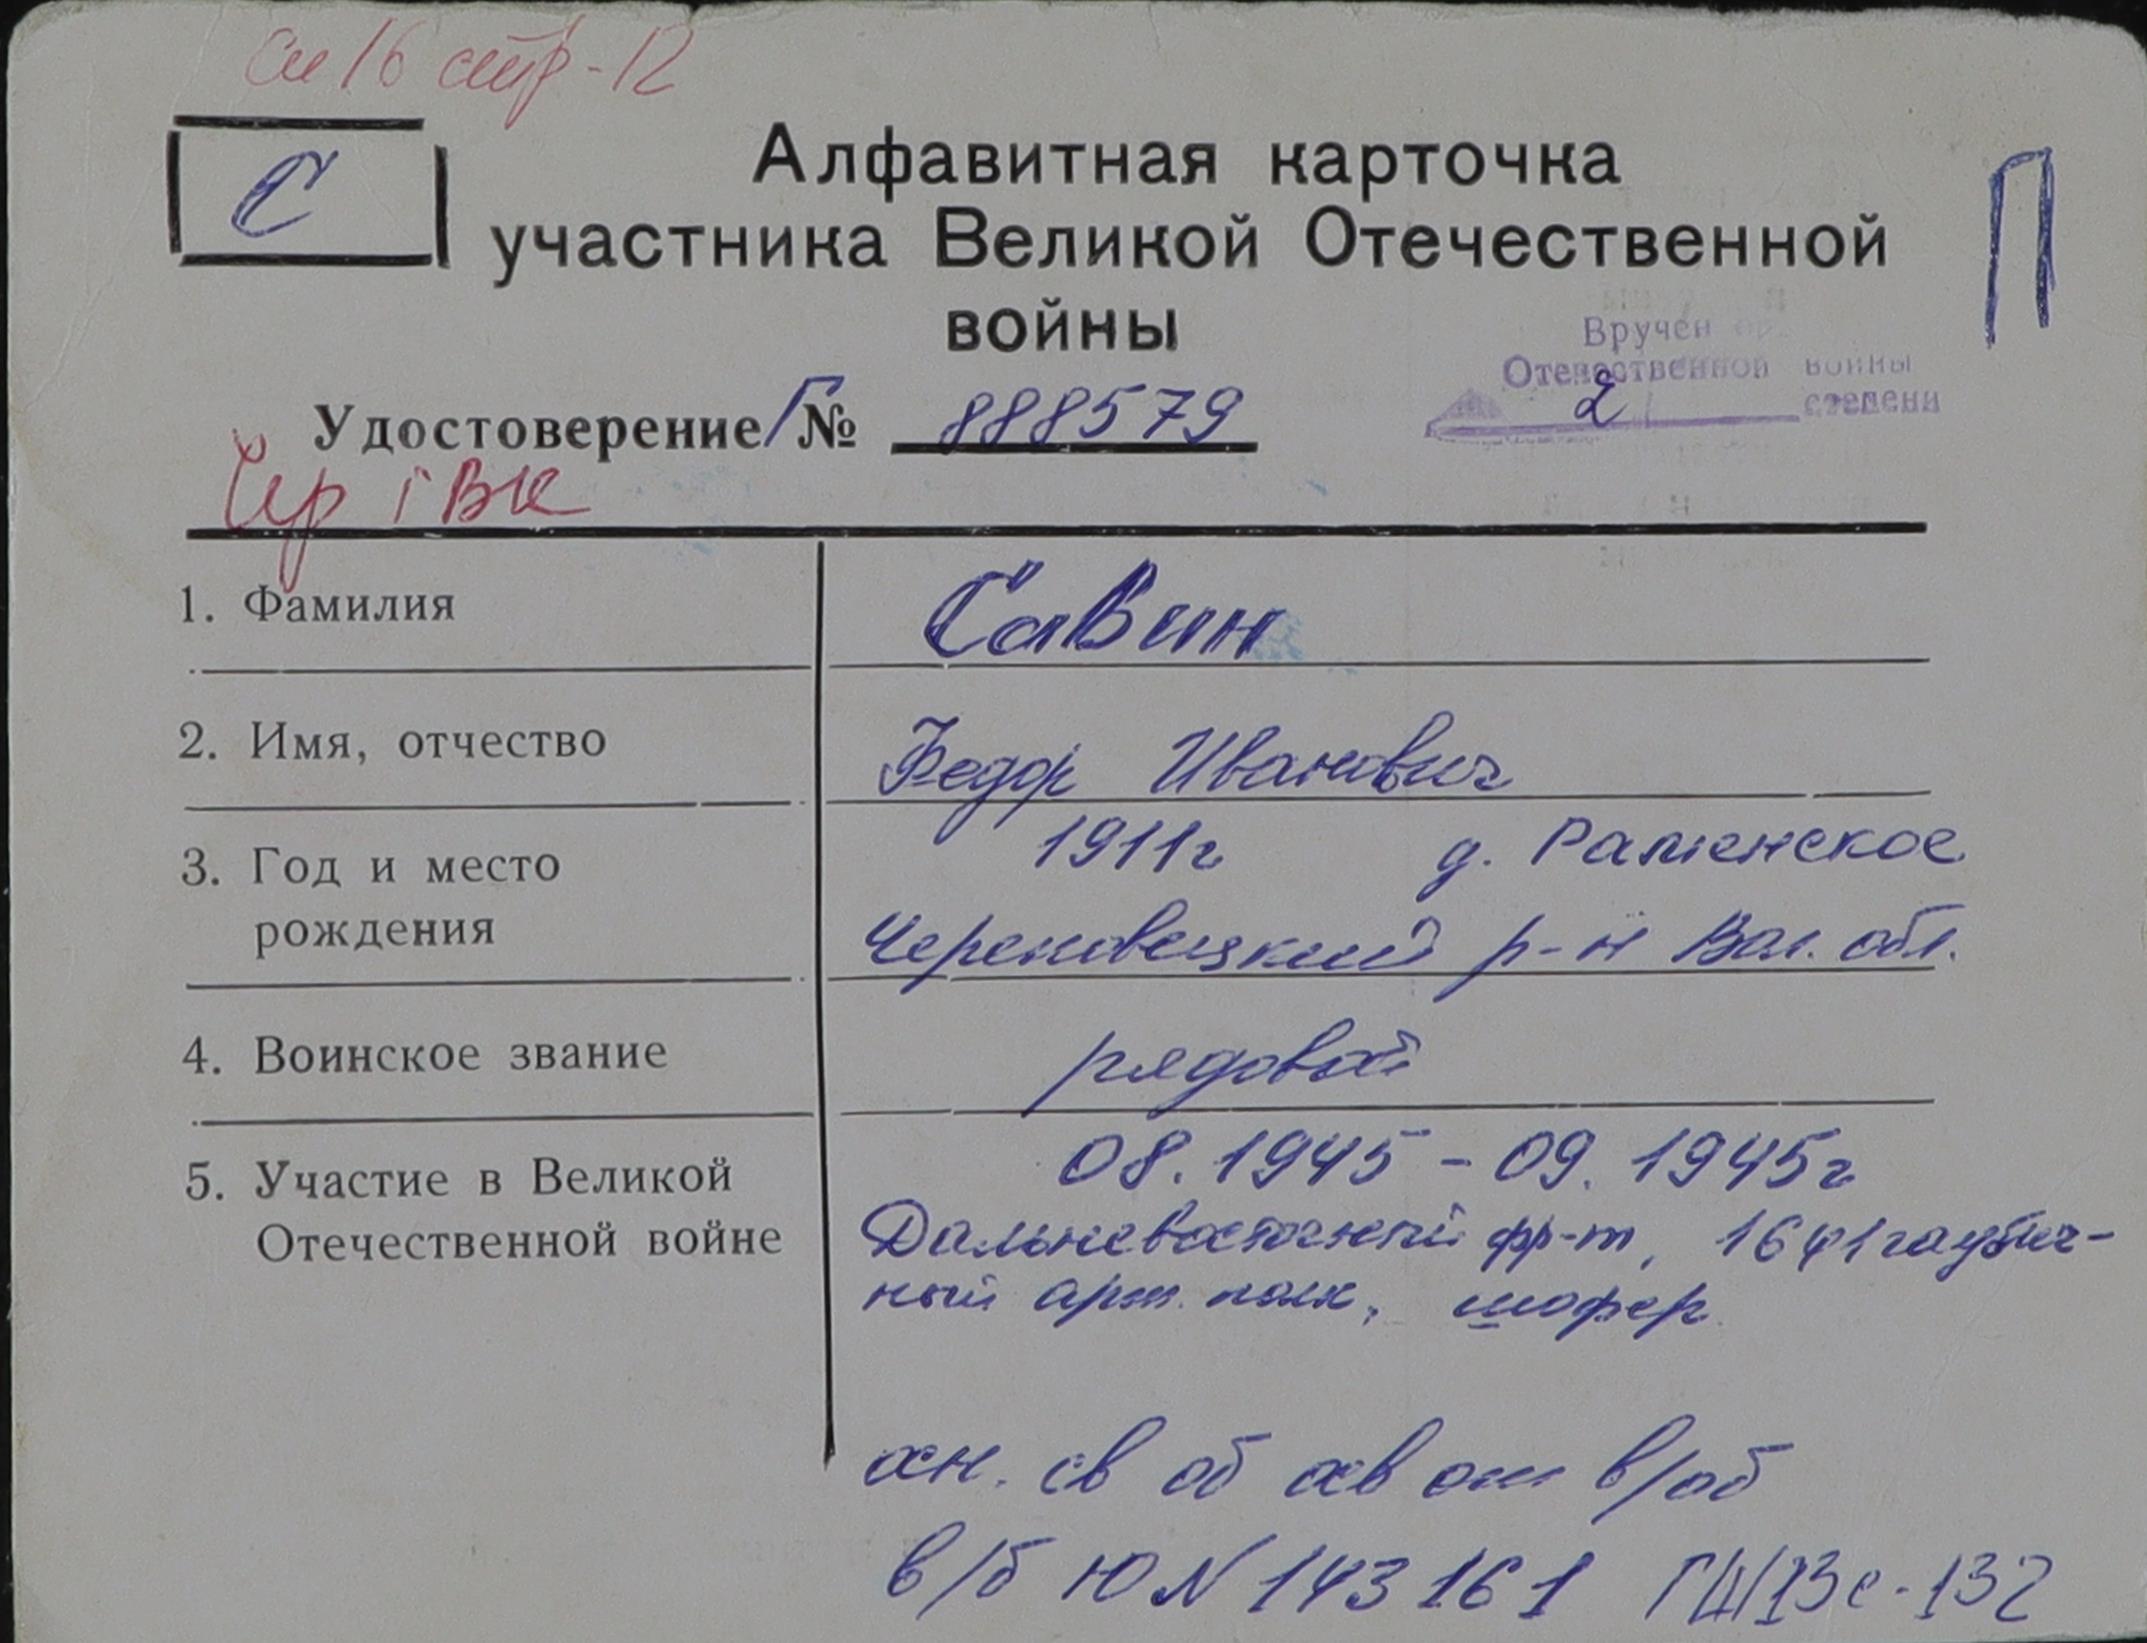 см 16 стр-12
С
Алфавитная карточка
участника Великой Отечественной
войны
П
Вручен
Отечественной войны
2 степени
Удостоверение Г № 888579
Чер ГВК
1. Фамилия Савин
2. Имя, отчество Федор Иванович
3. Год и место 1911г д. Раменское
рождения Череповецкий р-н Вол. обл.
4. Воинское звание рядовой
5. Участие в Великой 08.1945 - 09.1945г
Отечественной войне Дальневосточный фр-т, 1641 гаубич-
ный арт. полк, шофер
осн. св об ав от в/об
в/б Ю N 143161